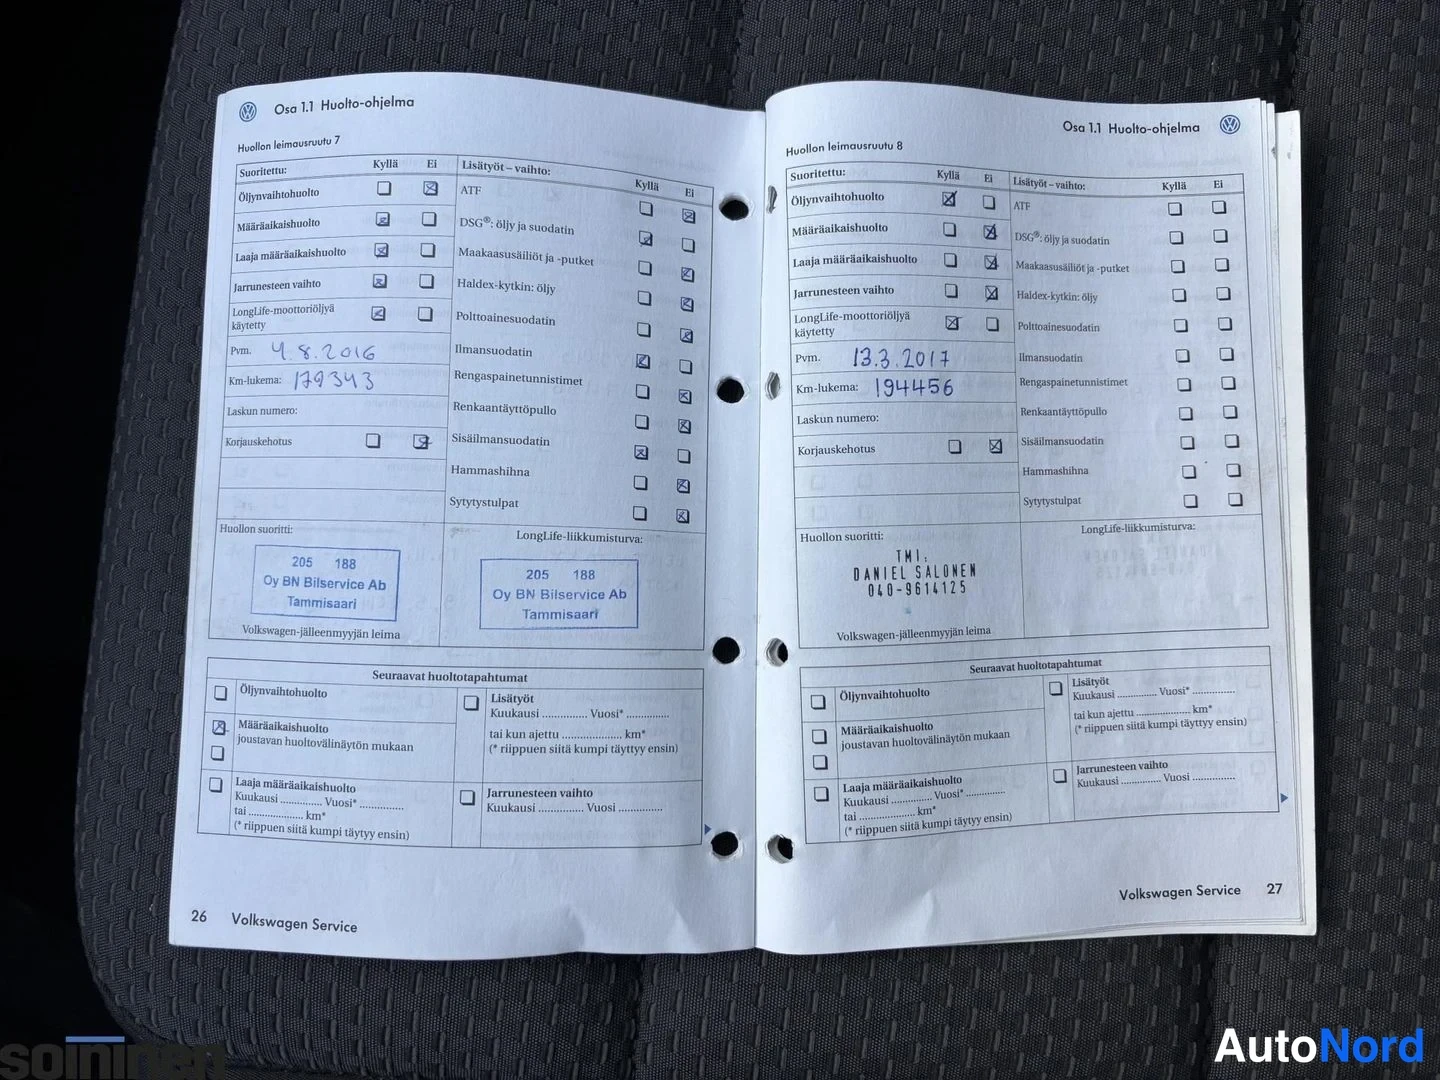 Osa 1.1 Huolto-ohjelma
Huollon leimausruutu 7
Suoritettu: Kyllä Ei
Öljynvaihtohuolto
Määräaikaishuolto
Laaja määräaikaishuolto
Jarrunesteen vaihto
LongLife-moottoriöljyä
käytetty
Pvm. 4.8.2016
Km-lukema: 179343
Laskun numero:
Korjauskehotus
Lisätyöt – vaihto: Kyllä Ei
ATF
DSG®: öljy ja suodatin
Maakaasusäiliöt ja -putket
Haldex-kytkin: öljy
Polttoainesuodatin
Ilmansuodatin
Rengaspainetunnistimet
Renkaantäyttöpullo
Sisäilmansuodatin
Hammashihna
Sytytystulpat
Huollon suoritti:
205 188
Oy BN Bilservice Ab
Tammisaari
Volkswagen-jälleenmyyjän leima
LongLife-liikkumisturva:
205 188
Oy BN Bilservice Ab
Tammisaari
Seuraavat huoltotapahtumat
Öljynvaihtohuolto
Määräaikaishuolto
joustavan huoltovälinäytön mukaan
Laaja määräaikaishuolto
Kuukausi .............. Vuosi* ..............
tai .................... km*
(* riippuen siitä kumpi täytyy ensin)
Lisätyöt
Kuukausi .............. Vuosi* ..............
tai kun ajettu .................... km*
(* riippuen siitä kumpi täyttyy ensin)
Jarrunesteen vaihto
Kuukausi .............. Vuosi ..............
26 Volkswagen Service
Osa 1.1 Huolto-ohjelma
Huollon leimausruutu 8
Suoritettu: Kyllä Ei
Öljynvaihtohuolto
Määräaikaishuolto
Laaja määräaikaishuolto
Jarrunesteen vaihto
LongLife-moottoriöljyä
käytetty
Pvm. 13.3.2017
Km-lukema: 194456
Laskun numero:
Korjauskehotus
Lisätyöt – vaihto: Kyllä Ei
ATF
DSG®: öljy ja suodatin
Maakaasusäiliöt ja -putket
Haldex-kytkin: öljy
Polttoainesuodatin
Ilmansuodatin
Rengaspainetunnistimet
Renkaantäyttöpullo
Sisäilmansuodatin
Hammashihna
Sytytystulpat
Huollon suoritti:
TMI:
DANIEL SALONEN
040-9614125
Volkswagen-jälleenmyyjän leima
LongLife-liikkumisturva:
Seuraavat huoltotapahtumat
Öljynvaihtohuolto
Määräaikaishuolto
joustavan huoltovälinäytön mukaan
Laaja määräaikaishuolto
Kuukausi .............. Vuosi* ..............
tai .................... km*
(* riippuen siitä kumpi täytyy ensin)
Lisätyöt
Kuukausi .............. Vuosi* ..............
tai kun ajettu .................... km*
(* riippuen siitä kumpi täyttyy ensin)
Jarrunesteen vaihto
Kuukausi .............. Vuosi ..............
Volkswagen Service 27
soininen
AutoNord